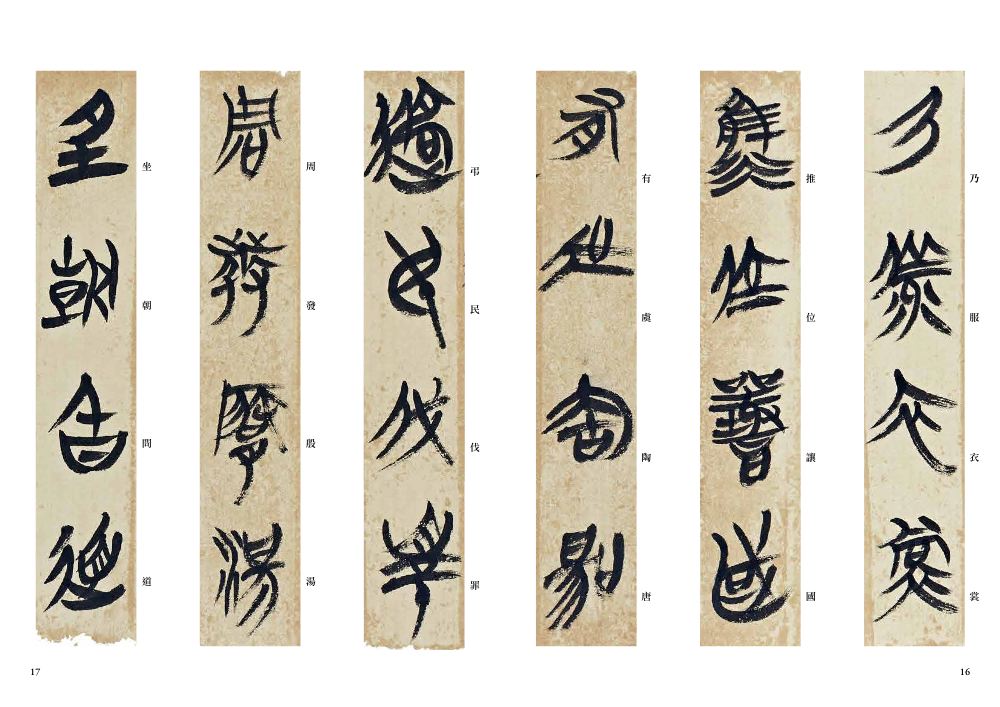 乃服衣裳
推位讓國
有虞陶唐
弔民伐罪
周發殷湯
坐朝問道
16
17